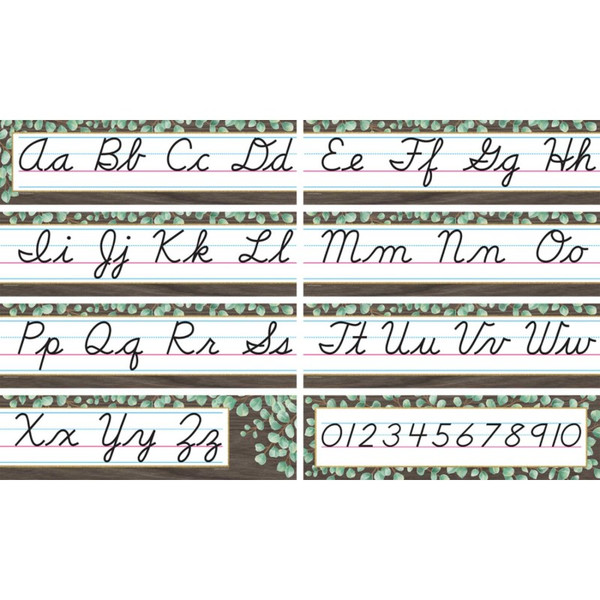 Aa Bb Cc Dd
Ee Ff Gg Hh
Ii Jj Kk Ll
Mm Nn Oo
Pp Qq Rr Ss
Tt Uu Vv Ww
Xx Yy Zz
0 1 2 3 4 5 6 7 8 9 10